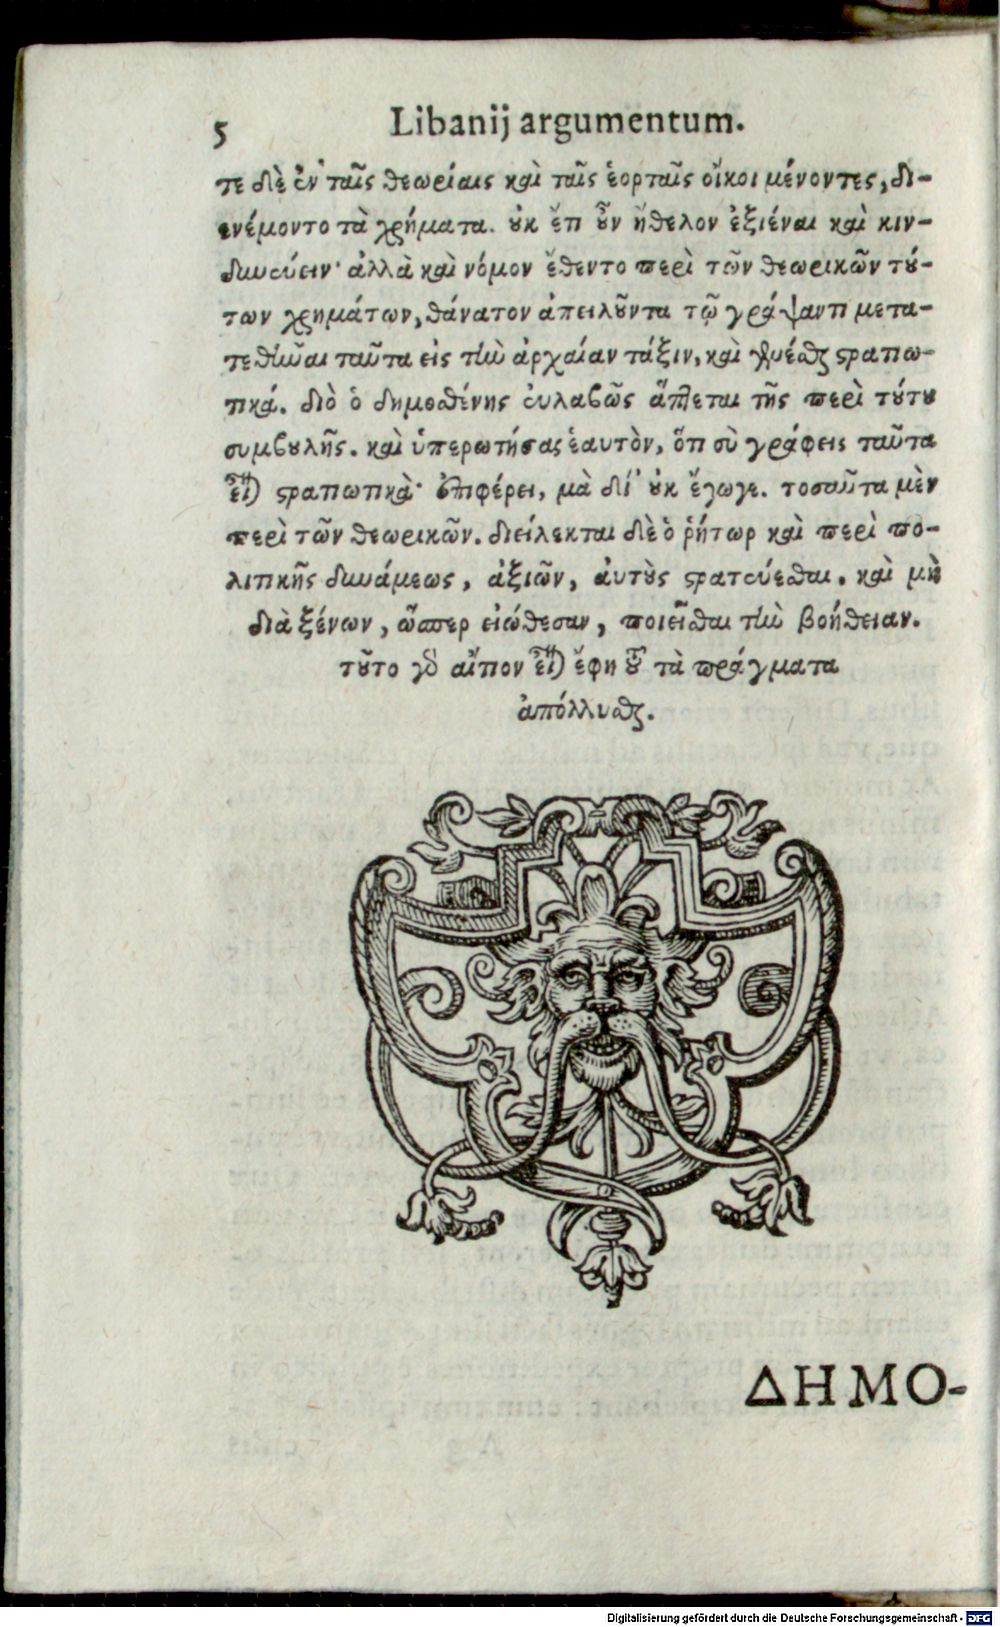 5 Libanij argumentum.
τε δὲ ἐν ταῖς θεωρίαις καὶ ταῖς ἑορταῖς οἴκοι μένοντες, δι-
ενέμοντο τὰ χρήματα. οὐκ ἔτι οὖν ἤθελον ἐξιέναι καὶ κιν-
δυνεύειν· ἀλλὰ καὶ νόμον ἔθεντο περὶ τῶν θεωρικῶν τού-
των χρημάτων, θάνατον ἀπειλοῦντα τῷ γράψαντι μετα-
τεθῆναι ταῦτα εἰς τὴν ἀρχαίαν τάξιν, καὶ γενέσθαι στρατιω-
τικά. διὸ ὁ δημοσθένης εὐλαβῶς ἅπτεται τῆς περὶ τούτου
συμβουλῆς. καὶ ὑπερωτήσας ἑαυτὸν, ὅτι σὺ γράφεις ταῦτα
εἶναι στρατιωτικὰ· ἐπιφέρει, μὰ δί' οὐκ ἔγωγε. τοσαῦτα μὲν
περὶ τῶν θεωρικῶν. διείλεκται δὲ ὁ ῥήτωρ καὶ περὶ πο-
λιτικῆς δυνάμεως, ἀξιῶν, αὐτοὺς στρατεύεσθαι. καὶ μὴ
διὰ ξένων, ὥσπερ εἰώθεσαν, ποιεῖσθαι τὴν βοήθειαν.
τοῦτο γὰρ αἴτιον εἶναι ἔφη τοῦ τὰ πράγματα
ἀπόλλυσθαι.
ΔΗΜΟ-
Digitalisierung gefördert durch die Deutsche Forschungsgemeinschaft - DFG